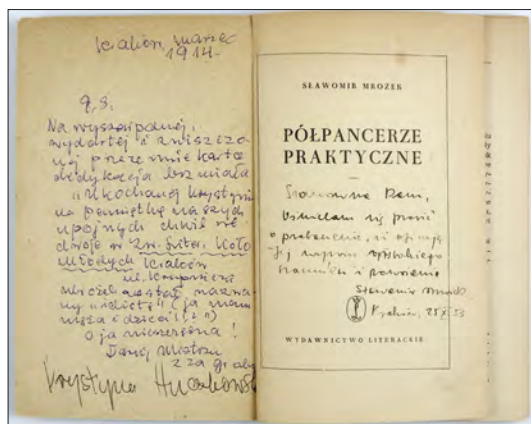 Kraków, marzec
1914.
Q.S.
Na wyszarpanej,
wydartej i zniszczo-
nej przeze mnie kartce
dedykacja brzmiała
"Ukochanej Krystynie
na pamiątkę naszych
upojnych chwil we
dwoje w Zw. Liter. Koło
Młodych Kraków
ul. Krupnicza
zostać nazwa-
ny "idiotą" (ja mam
męża i dzieci!
O ja nieszczęsna!
Twój Mistrzu
zza grobu
Krystyna
SŁAWOMIR MROŻEK
PÓŁPANCERZE
PRAKTYCZNE
Szanowna Pani,
Ośmielam się prosić
o przebaczenie,
Jej wyrazy
szacunku i
Sławomir Mrożek
Kraków, 25 XI 53
WYDAWNICTWO LITERACKIE